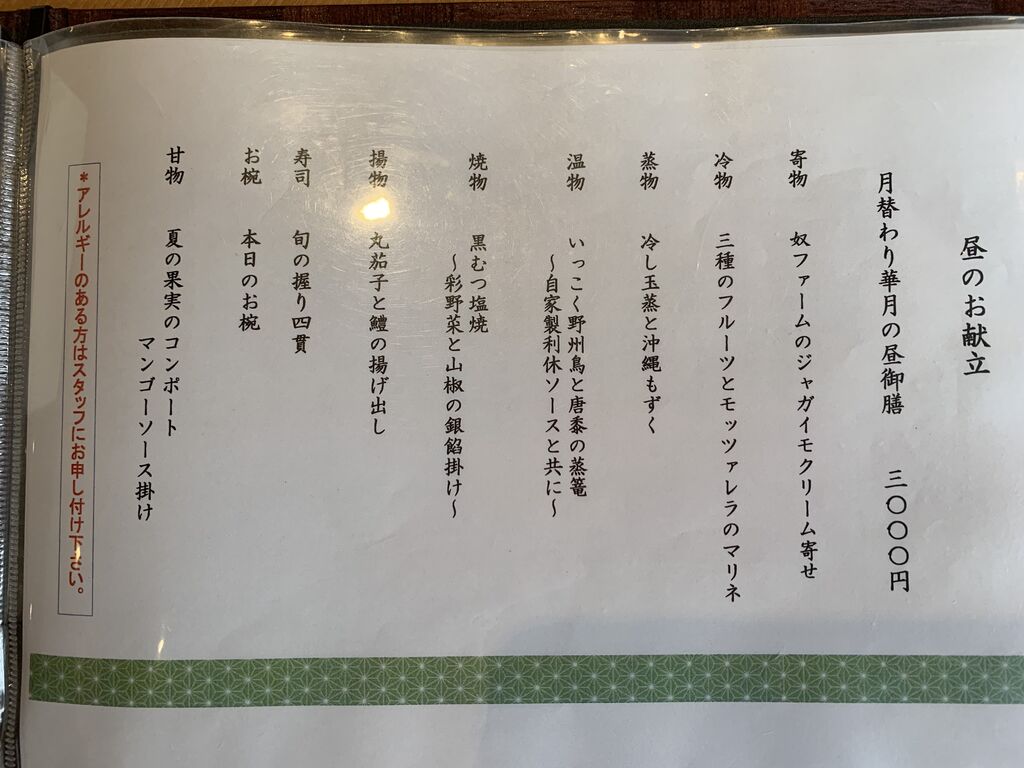 昼のお献立
月替わり華月の昼御膳 三〇〇〇円
寄物 奴ファームのジャガイモクリーム寄せ
冷物 三種のフルーツとモッツァレラのマリネ
蒸物 冷し玉蒸と沖縄もずく
温物 いっこく野州鳥と唐黍の蒸篭
～自家製利休ソースと共に～
焼物 黒むつ塩焼
～彩野菜と山椒の銀餡掛け～
揚物 丸茄子と鱧の揚げ出し
寿司 旬の握り四貫
お椀 本日のお椀
甘物 夏の果実のコンポート
マンゴーソース掛け
*アレルギーのある方はスタッフにお申し付け下さい。